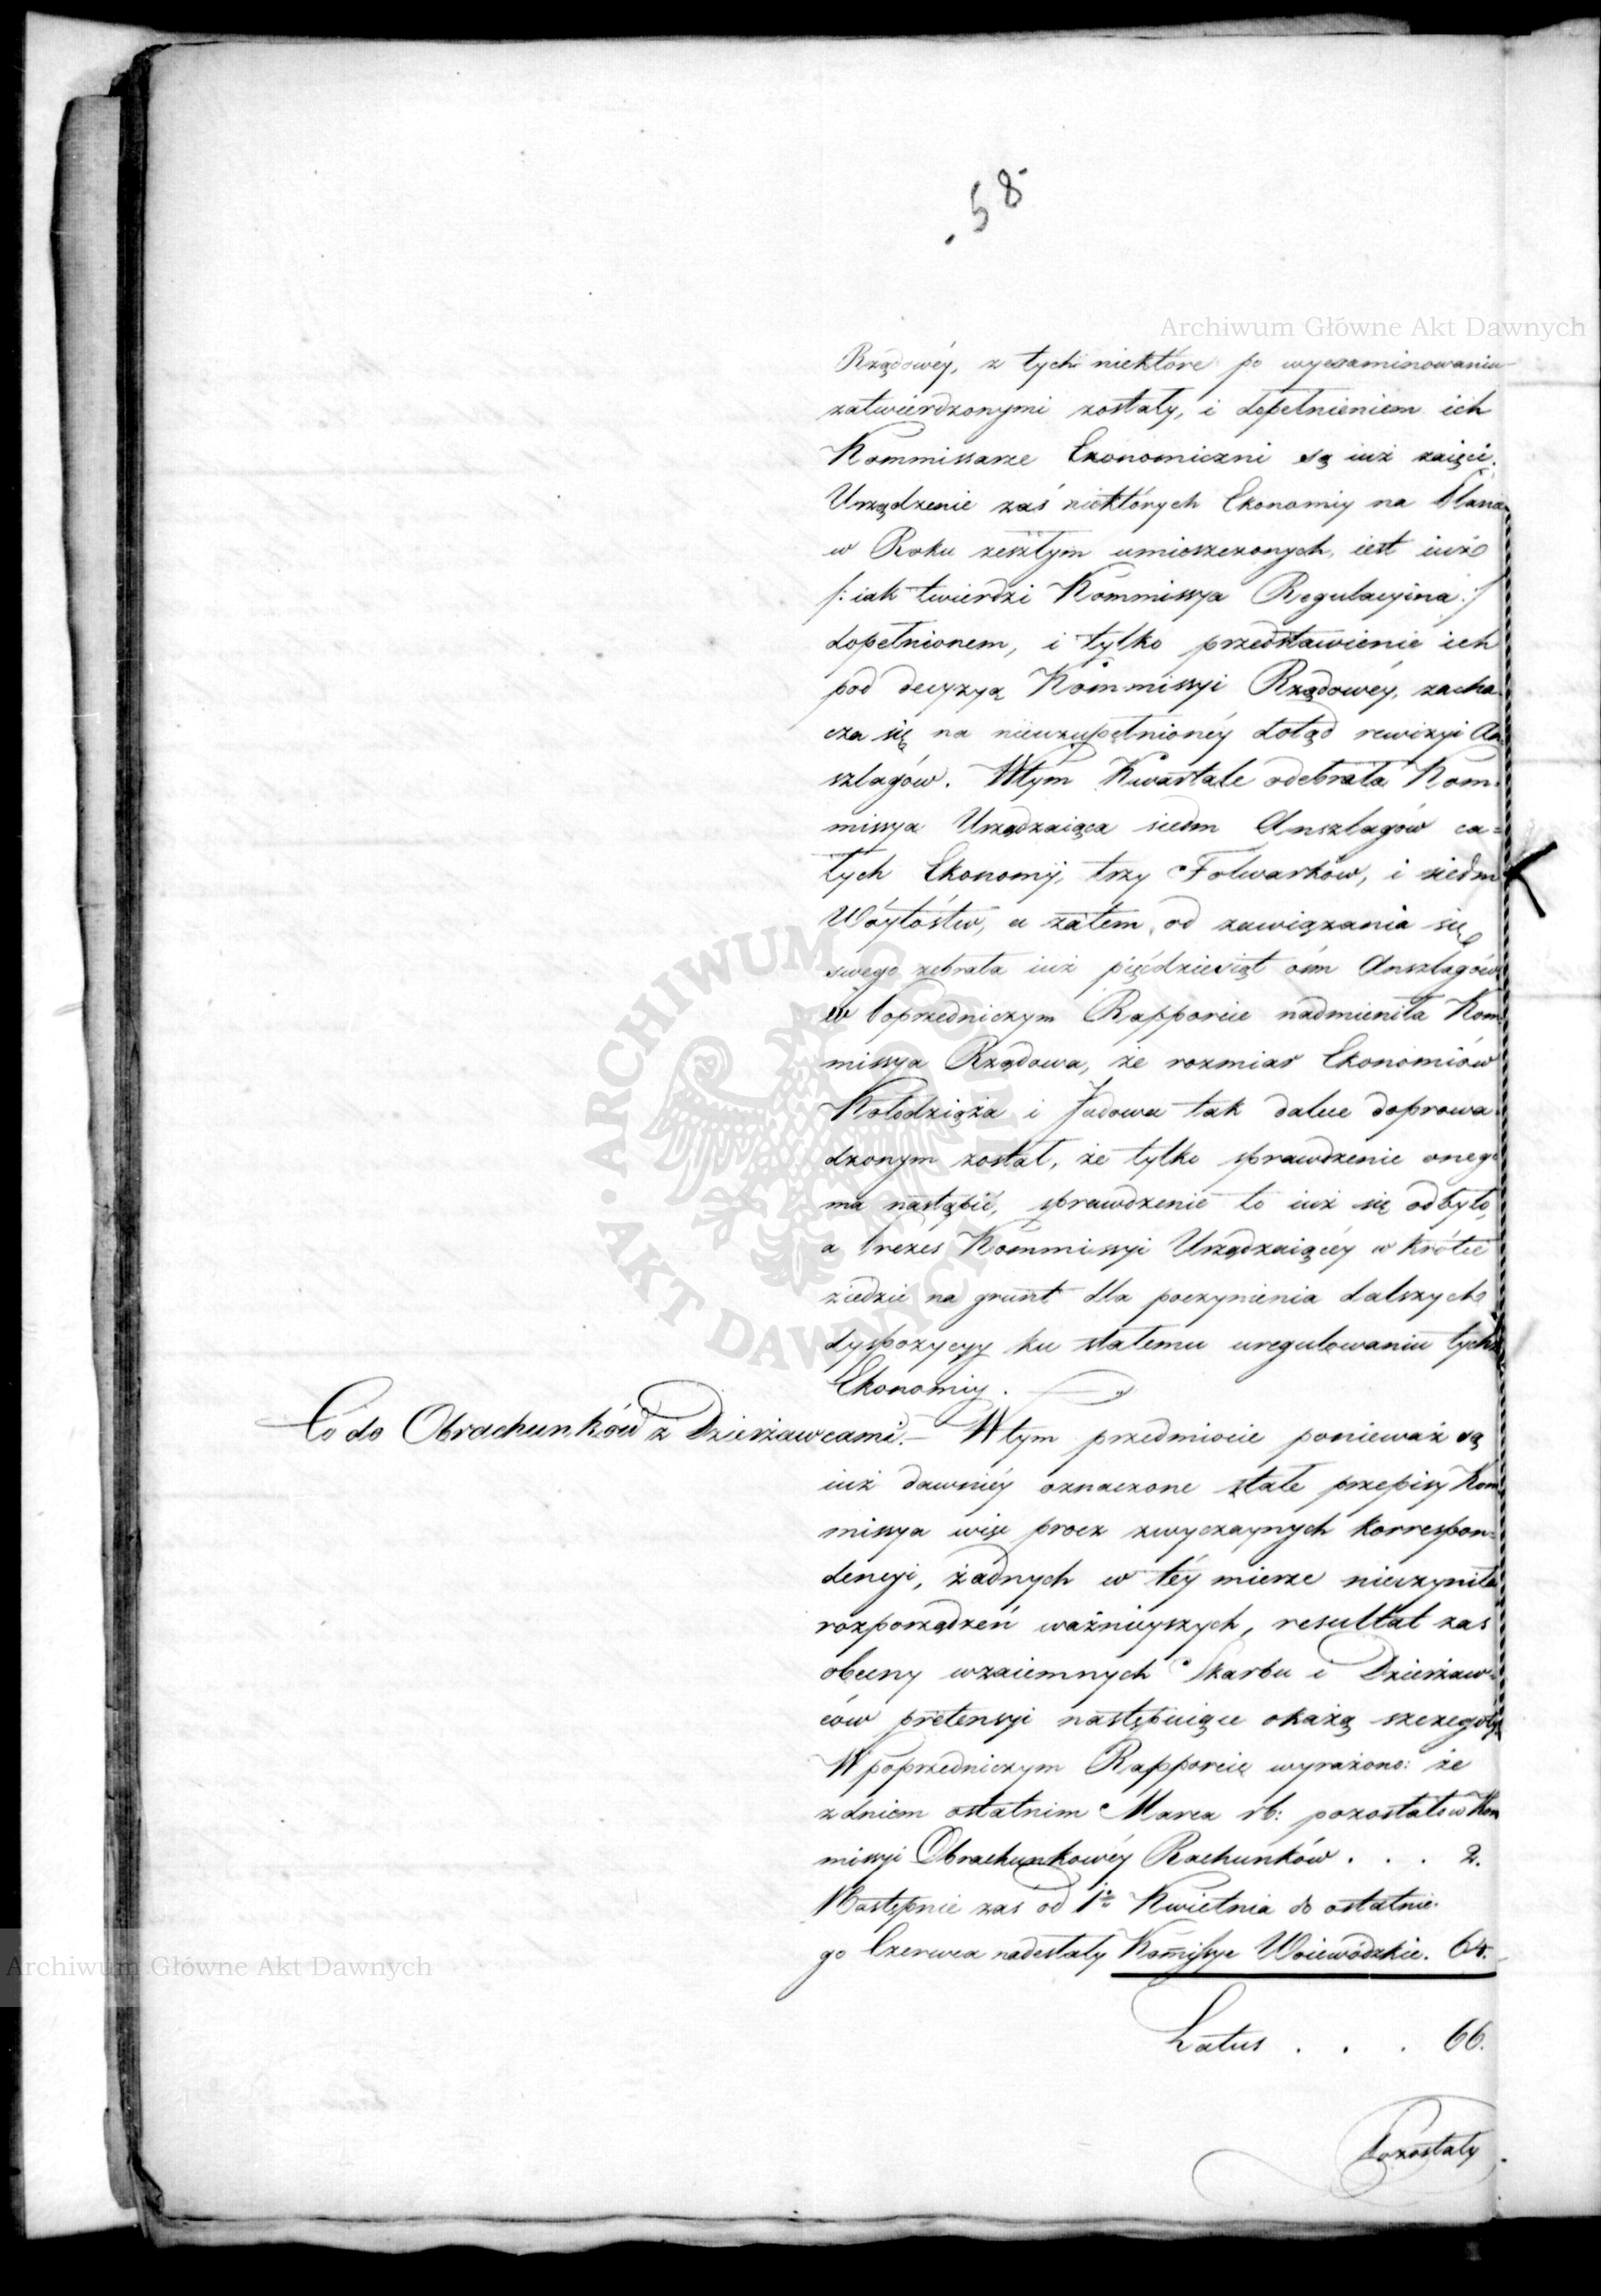 58
Archiwum Główne Akt Dawnych
Rządowéy, z tych niektóre po wyexaminowaniu
zatwierdzonymi zostały, i dopełnieniem ich
Kommissarze Ekonomiczni są iuż zaięci.
Urządzenie zaś niektórych Ekonomiy na Etana
w Roku zeszłym umieszczonych, iest iuż
/: iak twierdzi Kommissya Regulacyina :/
dopełnionem, i tylko przedstawienie ich
pod decyzyą Kommissyi Rządowéy, zacha
cza się na nieuzupełnionéy dotąd rewizyi An
szlagów. W tym Kwartale odebrała Kom-
missya Urządzaiąca siedm Anszlagów ca=
łych Ekonomÿ, trzy Folwarków, i siedm
Wóytóstw, a zatem od zawiązania się
swego zebrała iuż pięćdziesiąt ośm Anszlagów
w Poprzedniczym Rapporcie nadmieniła Kom
missya Rządowa, że rozmiar Ekonomiów
Kołodziąża i Jadowa tak dalece doprowa
dzonym został, że tylko sprawdzenie onego
ma nastąpić, sprawdzenie to iuż się odbyło,
a Prezes Kommissyi Urządzaiącéy w krótce
ziedzie na grunt dla poczynienia dalszych
dyspozycyy ku stałemu uregulowaniu tych
Ekonomiy.
Co do Obrachunków z Dzierżawcami. – W tym przedmiocie ponieważ są
iuż dawniéy oznaczone stałe przepisy Kom
missya więc procz zwyczaynych korrespon=
dencyi, żadnych w téy mierze nieczyniła
rozporządzeń ważnieyszych, resultat zas
obecny wzaiemnych Skarbu i Dzierżaw=
ców pretensyi następuiące okażą szczegóły
W poprzedniczym Rapporcie wyrażono: że
z dniem ostatnim Marca rb: pozostało w Kom
missyi Obrachunkowéy Rachunków . . . 2.
Następnie zas od 1º Kwietnia do ostatnie-
go Czerwca nadesłały Komissye Woiewódzkie. 64.
Archiwum Główne Akt Dawnych
Latus . . . 66.
Pozostały
ARCHIWUM GŁÓWNE AKT DAWNYCH